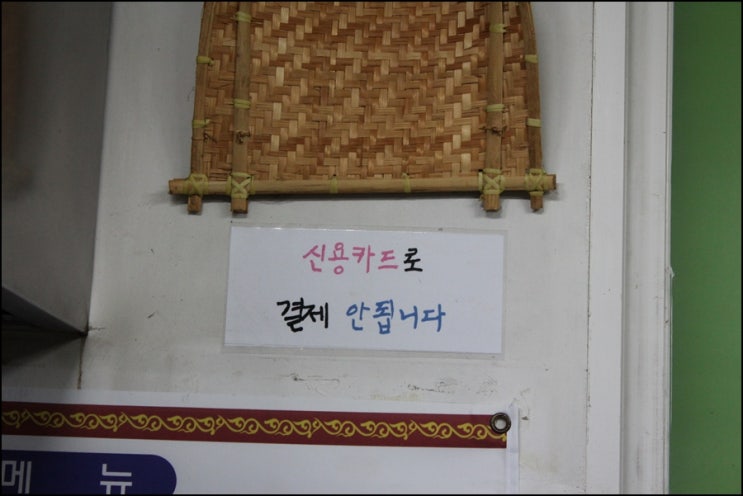 신용카드로
결제 안됩니다
메 뉴